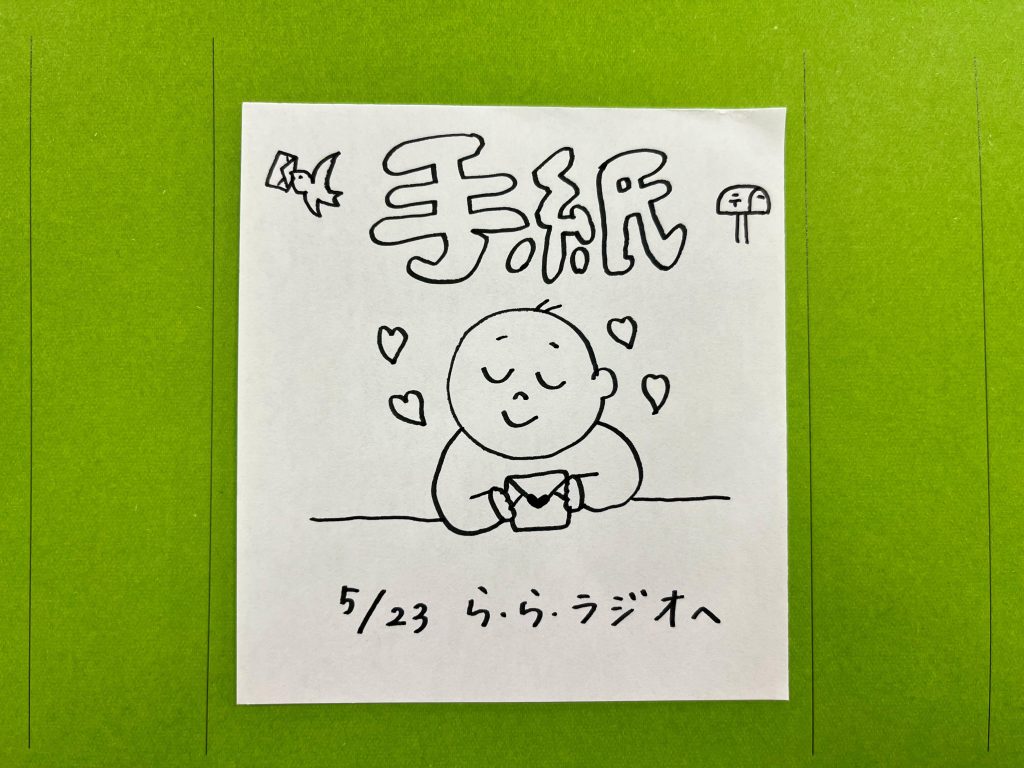 手紙
〒
5/23 ら・ら・ラジオへ